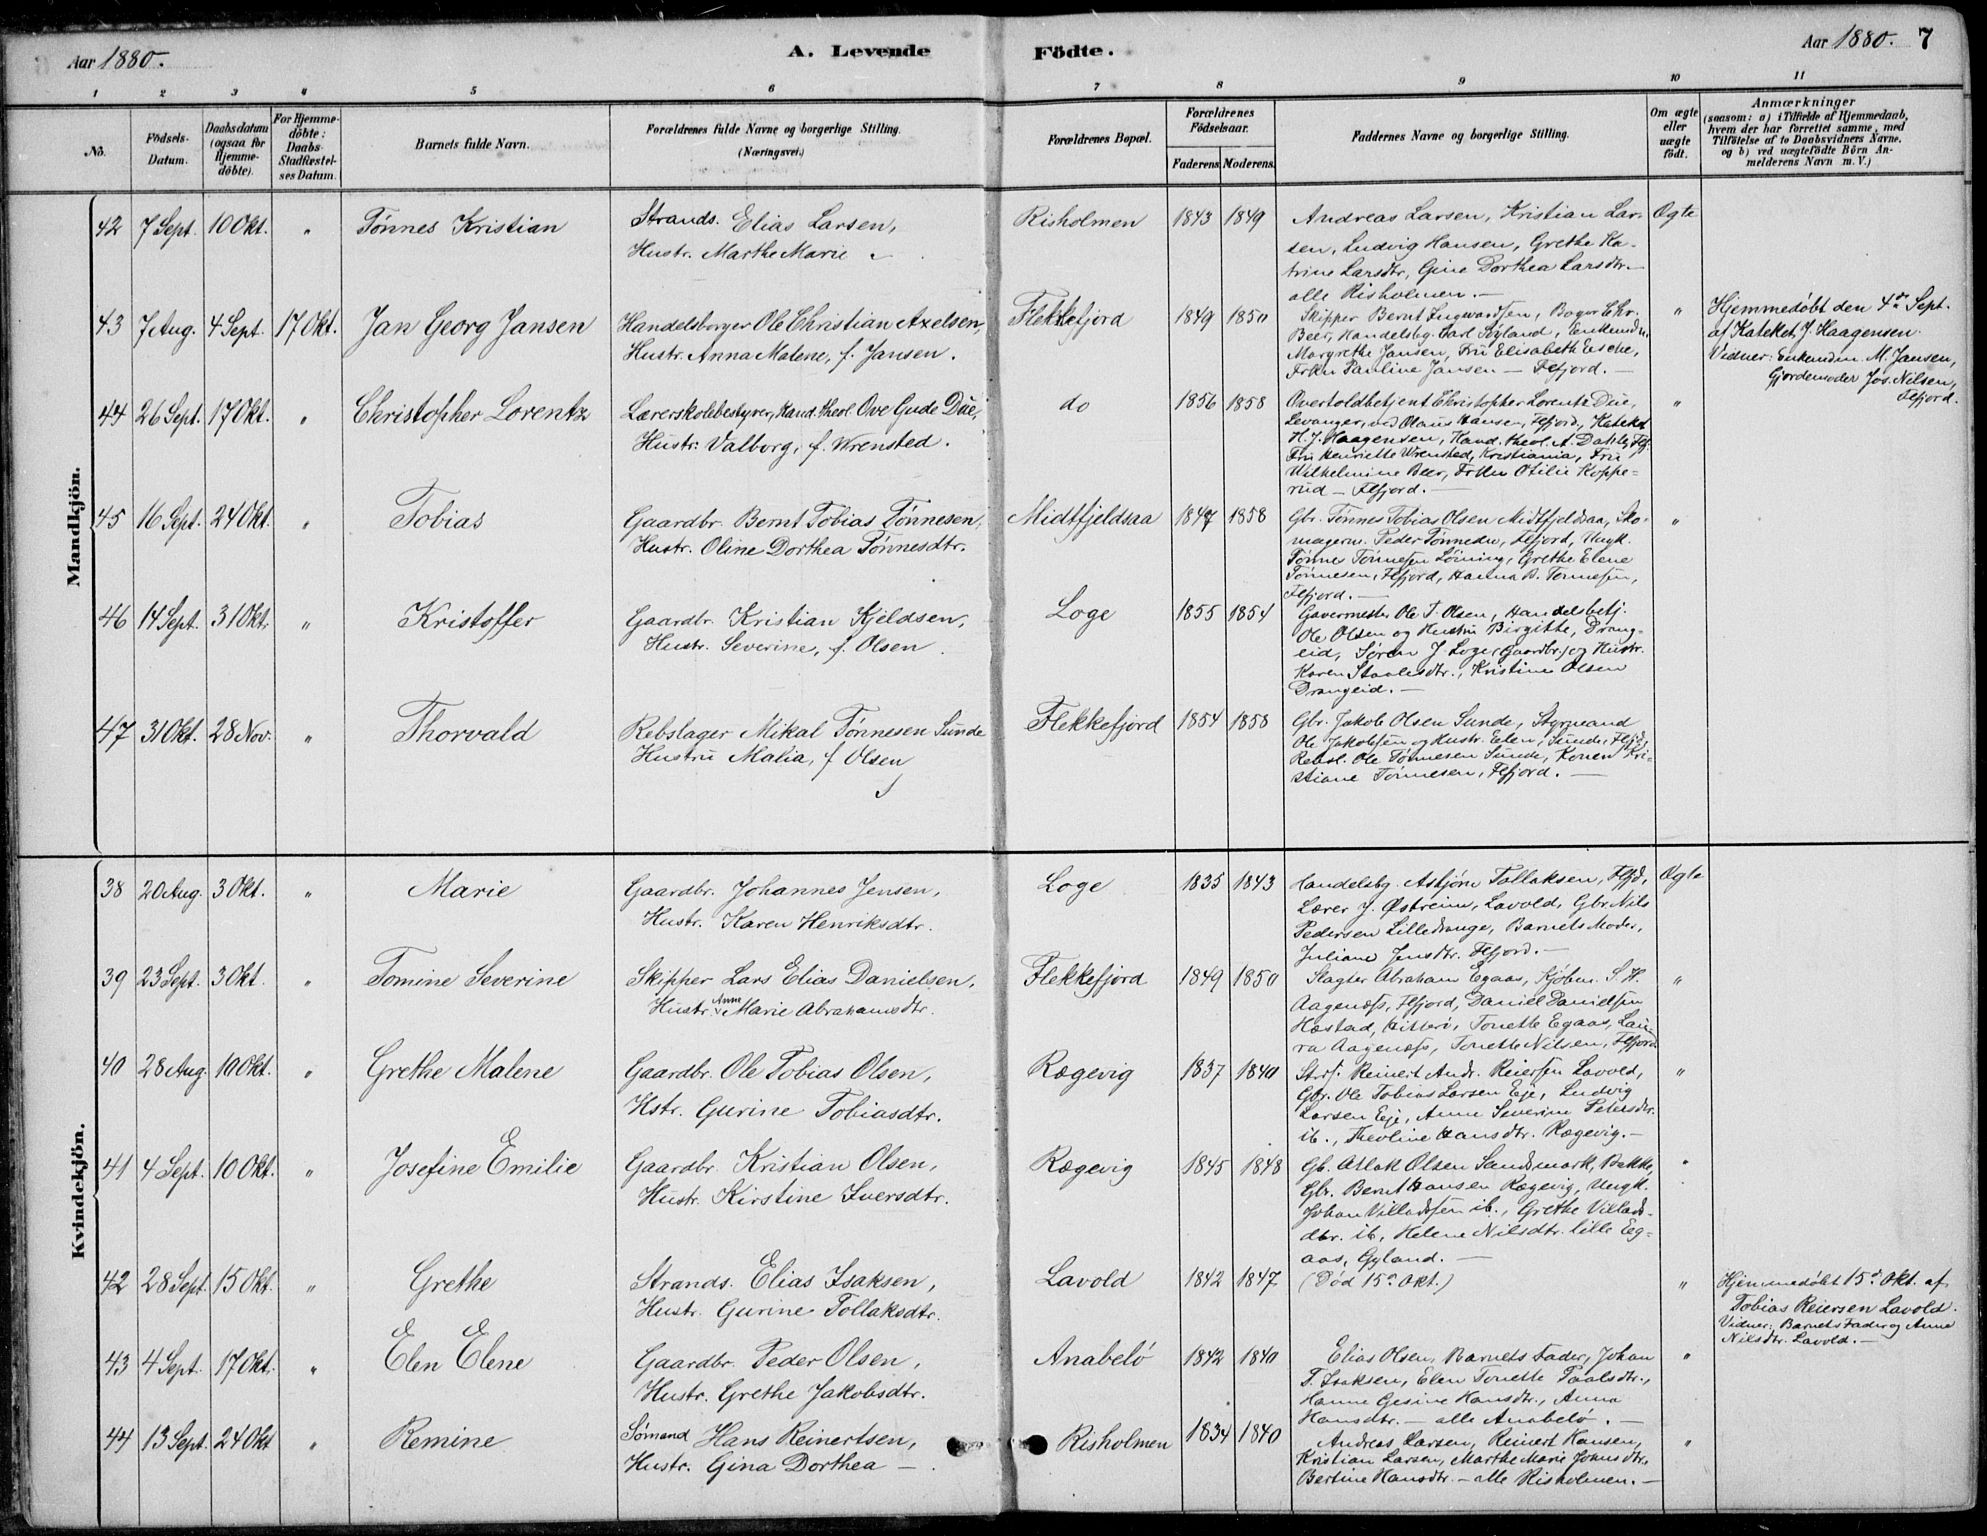 Aar 1880.
A. Levende Födte.
Aar 1880. 7
1 2 3 4 5 6 7 8 9 10 11
No.
Födsels-Datum.
Daabsdatum (ogsaa for Hjemme-döbte).
For Hjemme-döbte: Daabs-Stadfæstel-ses Datum.
Barnets fulde Navn.
Forældrenes fulde Navne og borgerlige Stilling. (Næringsvei.)
Forældrenes Bopæl.
Forældrenes Födselsaar.
Faderens. Moderens.
Faddernes Navne og borgerlige Stilling.
Om ægte eller uægte födt.
Anmærkninger
(saasom: a) i Tilfælde af Hjemmedaab,
hvem der har forrettet samme, med
Tilföielse af to Daabsvidners Navne.
og b) ved uægtefödte Börn An-
melderens Navn m. V.)
Mandkjön.
42 7 Sept. 10 Okt. " Tønnes Kristian
Strands. Elias Larsen,
Hustr. Marthe Marie
Risholmen 1843 1849
Andreas Larsen, Kristian Lar-
sen, Ludvig Hansen, Grethe Ka-
trine Larsdtr, Gine Dorthea Larsdtr.-
alle Risholmen.-
Ægte
43 7 Aug. 4 Sept. 17 Okt. Jan Georg Jansen
Handelsborger Ole Christian Axelsen,
Hustr. Anna Malene, f. Jansen.
Flekkefjord 1849 1850
Skipper Bernt Ingwardsen, Chr.
Beer, Handelsbg. Carl Gyland, Enkemdm.
Margrethe Jansen, Fru Elisabeth
Frkn Pauline Jansen — Flfjord.-
"
Hjemmedøbt den 4de Sept.
af Kateket J. Haagensen.
Vidner: Enkemdm. M. Jansen,
Gjordemoder Jos. Nilsen,
Flfjord.
44 26 Sept. 17 Okt. " Christopher Lorentz
Lærerskolebestyrer, Kand. theol. Ove Gude Due,
Hustr: Valborg, f. Wrensted.
do 1856 1858
Overtoldbetjent Christopher Lorentz Due,
Levanger, ved Olaus Hansen, Flfjord, Kateket
H. J. Haagensen, Kand. theol. A. Dahl,
Fru Henriette Wrensted, Kristiania, Fru
Wilhelmine Beer, Frkn Otilie Koppe-
rud — Flfjord.-
"
45 16 Sept. 24 Okt. " Tobias
Gaardbr. Bernt Tobias Tønnesen,
Hustr. Oline Dorthea Tønnesdtr.
Midtfjeldsaa 1847 1858
Gbr. Tønnes Tobias Olsen Midtfjeldsaa, Sko-
magerm. Peder Flfjord, Ungk.
Tønnes Tønnesen Løining, Grethe Elene
Tønnesen, Flfjord, Hanna B. Tønnesen,
Flfjord.-
"
46 14 Sept. 31 Okt. " Kristoffer
Gaardbr. Kristian Kjeldsen,
Hustr. Severine, f. Olsen.
Loge 1855 1854
Garvermester Ole T. Olsen, Handelsbetj.
Ole Olsen og Hustru Birgitte, Drang-
eid, Søren J. Loge, (Gaardbr.) og Hustr.
Karen Staalesdtr., Kristine Olsen
Drangeid.-
47 31 Okt. 28 Nov. " Thorvald
Rebslager Mikal Tønnesen Sunde
Hustru Malia, f Olsen
Flekkefjord 1854 1858
Gbr. Jakob Olsen Sunde, Styrmand
Ole Jakobsen og Hustr. Elen, Sunde, Flfjd,
Rebsl. Ole Tønnesen Sunde, Konen Kri-
stiane Tønnesen, Flfjord.-
Kvindekjön.
38 20 Aug. 3 Okt. " Marie
Gaardbr. Johannes Jensen,
Hustr. Karen Henriksdtr.
Loge 1835 1843
Handelsbg. Asbjørn Tollaksen, Flfjd,
Lærer J. Østreim, Lavold, Gbr Nils
Pedersen Lilledrange, Barnets Moder,
Juliane Jensdtr. Flfjord.-
Ægte
39 23 Sept. 3 Okt. " Tomine Severine
Skipper Lars Elias Danielsen,
Hustr. Anne Marie Abrahamsdtr.
Flekkefjord 1849 1850
Slagter Abraham Egaas, Kjøbm. S. H.
Aagenæss, Flfjord, Daniel Danielsen
Hæstad, Hitterø, Tonette Egaas, Lau-
ra Aagenæss, Tonette Nilsen, Flfjord
"
40 28 Aug. 10 Okt. " Grethe Malene
Gaardbr. Ole Tobias Olsen,
Hstr. Gurine Tobiasdtr.
Rægevig 1837 1840
Strs. Reinert Andr. Reiersen Lavold,
Gbr. Ole Tobias Larsen Eje, Ludvig
Larsen Eje, Anne Severine Petersdtr.
ib., Theoline Hansdtr. Rægevig.-
"
41 4 Sept. 10 Okt. " Josefine Emilie
Gaardbr. Kristian Olsen,
Hustr. Kirstine Iversdtr.
Rægevig 1845 1848
Gb. Atlak Olsen Sandsmark, Bakke,
Gbr. Bernt Hansen Rægevig, Ungk.
Johan Villadssen ib., Grethe Villads-
dtr. ib, Helene Nilsdtr. lille Eg-
aas, Gyland.-
"
42 28 Sept. 15 Okt. " Grethe
Strands. Elias Isaksen,
Hustr. Gurine Tollaksdtr.
Lavold 1842 1847
(Død 15de Okt.)
"
Hjemmedøbt 15de Okt. af
Tobias Reiersen Lavold.
Vidner: Barnets Fader og Anne
Nilsdtr. Lavold.-
43 4 Sept. 17 Okt. " Elen Elene
Gaardbr. Peder Olsen,
Hustr. Grethe Jakobsdtr.
Anabelø 1842 1840
Elias Olsen, Barnets Fader, Johan
T. Isaksen, Elen Tonette Paalsdtr.,
Hanne Gesine Hansdtr., Anna
Hansdtr.- alle Anabelø.-
"
44 13 Sept. 24 Okt " Remine
Sømand Hans Reinertsen,
Hustr. Gina Dorthea -
Risholmen 1834 1840
Andreas Larsen, Reinert Hansen,
Kristian Larsen, Marthe Marie Johnsdtr,
Bertine Hansdtr.- alle Risholmen.-
"